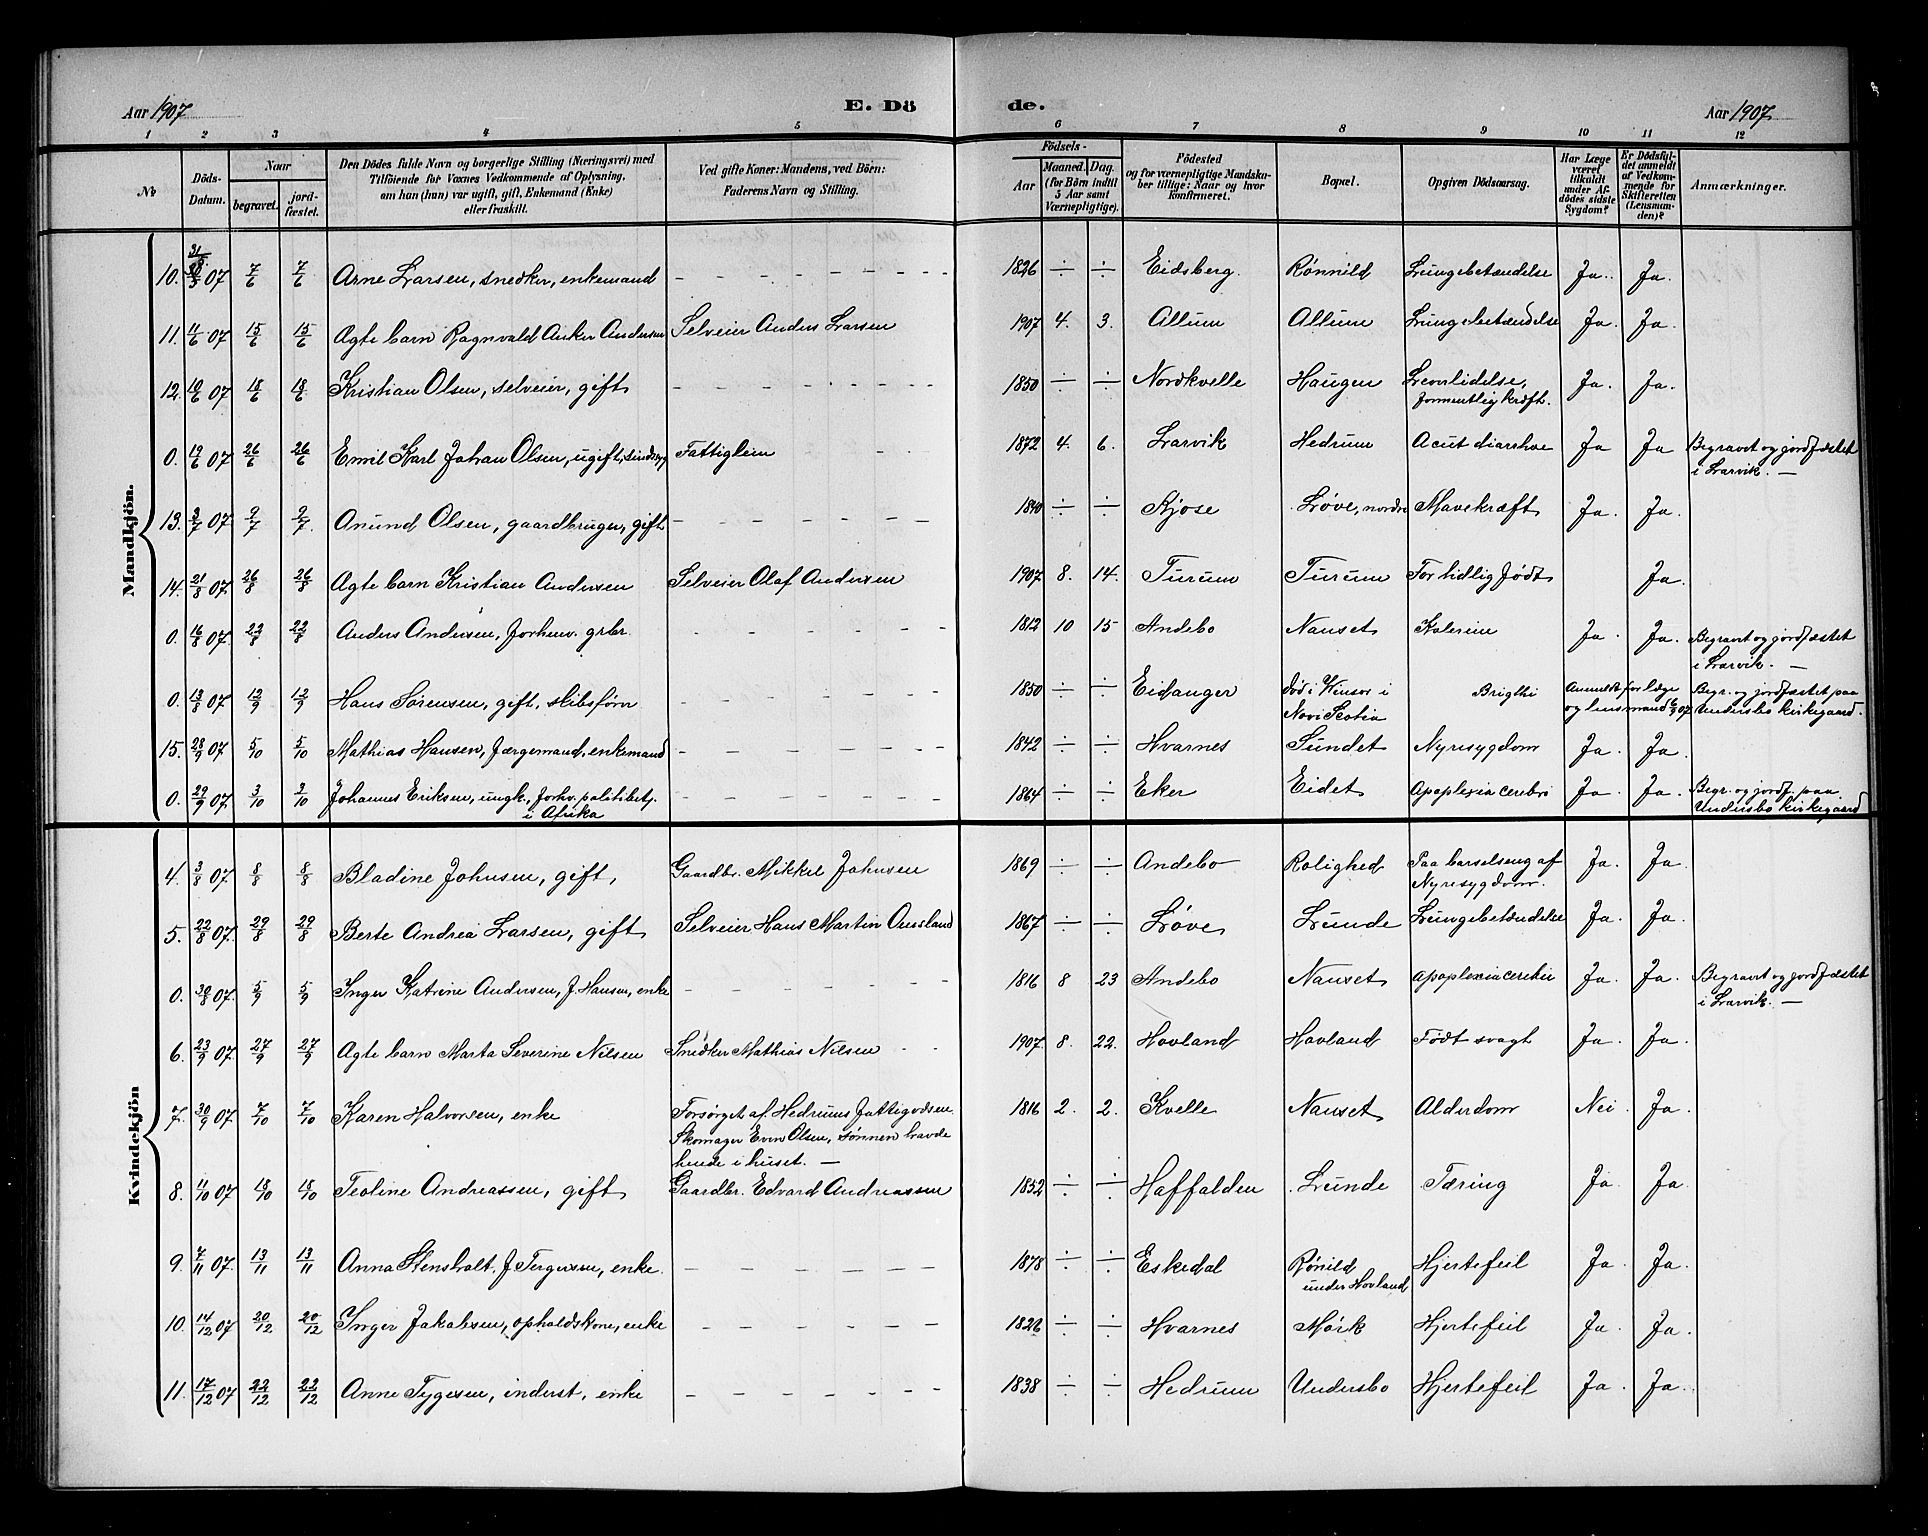 Aar 1907 E. Dö de. Aar 1907
1 2 3 4 5 6 7 8 9 10 11 12
№ Döds-Datum. Naar begravet. jord-fæstet. Den Dödes fulde Navn og borgerlige Stilling (Næringsvei) med Tilföiende for Voxnes Vedkommende af Oplysning, om han (hun) var ugift, gift, Enkemand (Enke) eller fraskilt. Ved gifte Koner: Mandens, ved Börn: Faderens Navn og Stilling. Födsels- Aar Maaned. Dag. (for Börn indtil 5 Aar samt Værnepligtige). Födested og for værnepligtige Mandskaber tillige: Naar og hvor konfirmeret. Bopæl. Opgiven Dödsaarsag. Har Læge været tilkaldt under Afdödes sidste Sygdom? Er Dödsfaldet anmeldt af Vedkommende for Skifteretten (Lensmanden)? Anmærkninger.
Mandkjön.
10. 31/5 07 7/6 7/6 Arne Larsen, snedker, enkemand – – – – – – – 1826 ÷ ÷ Eidsberg. Rønnild Lungebetændelse Ja. Ja.
11. 4/6 07 15/6 15/6 Ægte barn Ragnvald Anker Andersen Selveier Anders Larsen 1907 4. 3. Allum Allum Lungebetændelse Ja. Ja.
12. 10/6 07 18/6 18/6 Kristian Olsen, selveier, gift – – – – – – – 1850 ÷ ÷ Nordkvelle Haugen Leverlidelse, formentlig kræft. Ja. Ja.
0. 19/6 07 26/6 26/6 Emil Karl Johan Olsen, ugift, sindssyg Fattiglem 1872 4. 6. Larvik Hedrum Acut diarrhoe Ja Ja Begravet og jordfæstet i Larvik. —
13. 3/7 07 9/7 9/7 Anund Olsen, gaardbruger, gift – – – – – – – 1840 ÷ ÷ Kjose Løve, nordre Mavekræft Ja. Ja.
14. 21/8 07 26/8 26/8 Ægte barn Kristian Andersen Selveier Olaf Andersen 1907 8. 14. Turum Turum For tidlig født Ja.
0. 16/8 07. 22/8 22/8 Anders Andersen, forhenv. grbr. – – – – – – – 1812 10 15 Andebo Nauset Kolerine Ja. Ja. Begravt og jordfæstet i Larvik. —
0. 13/8 07 12/9 12/9 Hans Sørensen, gift, skibsførn – – – – – – – 1850 ÷ ÷ Eidanger død i Winsor i Novi Scotia Brigthi Anmeldt for læge og lensmand 6/9 07 Begr. og jordfæstet paa Undersbo kirkegaard.
15. 28/9 07 5/10 5/10 Mathias Hansen, færgemand, enkemand – – – – – – – 1842 ÷ ÷ Hvarnes Sundet Nyresygdom Ja. Ja.
0. 29/9 07. 3/10 3/10 Johannes Eriksen, ungk., forhv. politibetj. i Afrika – – – – – – – 1864 ÷ ÷ Eker Eidet Apoplexia cerebri Ja. Ja. Begr. og jordf. paa Undersbo kirkegaard
Kvindekjön
4. 3/8 07 8/8 8/8 Bladine Johnsen, gift, Gaardbr. Mikkel Johnsen 1869 ÷ ÷ Andebo Rolighed Paa barselseng af Nyresygdom. Ja. Ja.
5. 22/8 07. 29/8 29/8 Berte Andrea Larsen, gift Selveier Hans Martin 1867 ÷ ÷ Løve Lunde Lungebetændelse Ja. Ja.
0. 30/8 07. 5/9 5/9 Inger Katrine Andersen, f. Hansen, enke – – – – – – – 1816 8 23 Andebo Nauset Apoplexia cerebri Ja. Ja. Begravet og jordfæstet i Larvik. —
6. 23/9 07. 27/9 27/9 Ægte barn Marta Severine Nilsen Snedker Mathias Nilsen – – 1907. 8. 22. Hovland Hovland Født svagt Ja. Ja.
7. 30/9 07 7/10 7/10 Karen Halvorsen, enke Forsørget af Hedrums fattigvæsen. Skomager Even Olsen, sønnen havde hende i huset. — 1816 2. 2. Kvelle Nauset Alderdom Nei. Ja.
8. 11/10 07 18/10 18/10 Teoline Andreassen, gift Gaardbr. Edvard Andreassen 1852 ÷ ÷ Haffalden Lunde Tæring Ja. Ja.
9. 7/11 07. 13/11 13/11 Anna Stensholt. f. Tergersen, enke. – – – – – – – 1878 ÷ ÷ Eskedal Rønild under Hovland Hjertefeil Ja. Ja.
10. 14/12 07 20/12 20/12 Inger Jakobsen, opholdskone, enke – – – – – – – 1826 ÷ ÷ Hvarnes Mörk Hjertefeil Ja. Ja.
11. 17/12 07 22/12 22/12 Anne Tygesen, inderst, enke – – – – – – – 1838 ÷ ÷ Hedrum Undersbo Hjertefeil Ja. Ja.